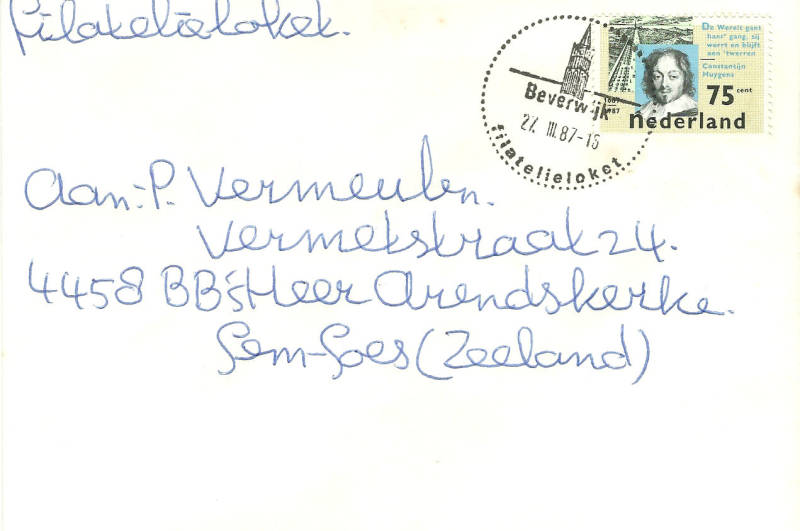 Filatelieloket.
De Wereld gaat
haar' gang, sij
werrt en blijft
aen 'twerren
Constantijn
Huygens
75 cent
1687
1987
nederland
Beverwijk
27. III.87-15
filatelieloket
Aan:-P. Vermeulen.
Vermetstraat 24.
4458 BB 's Heer Arendskerke.
Gem-Goes (Zeeland)